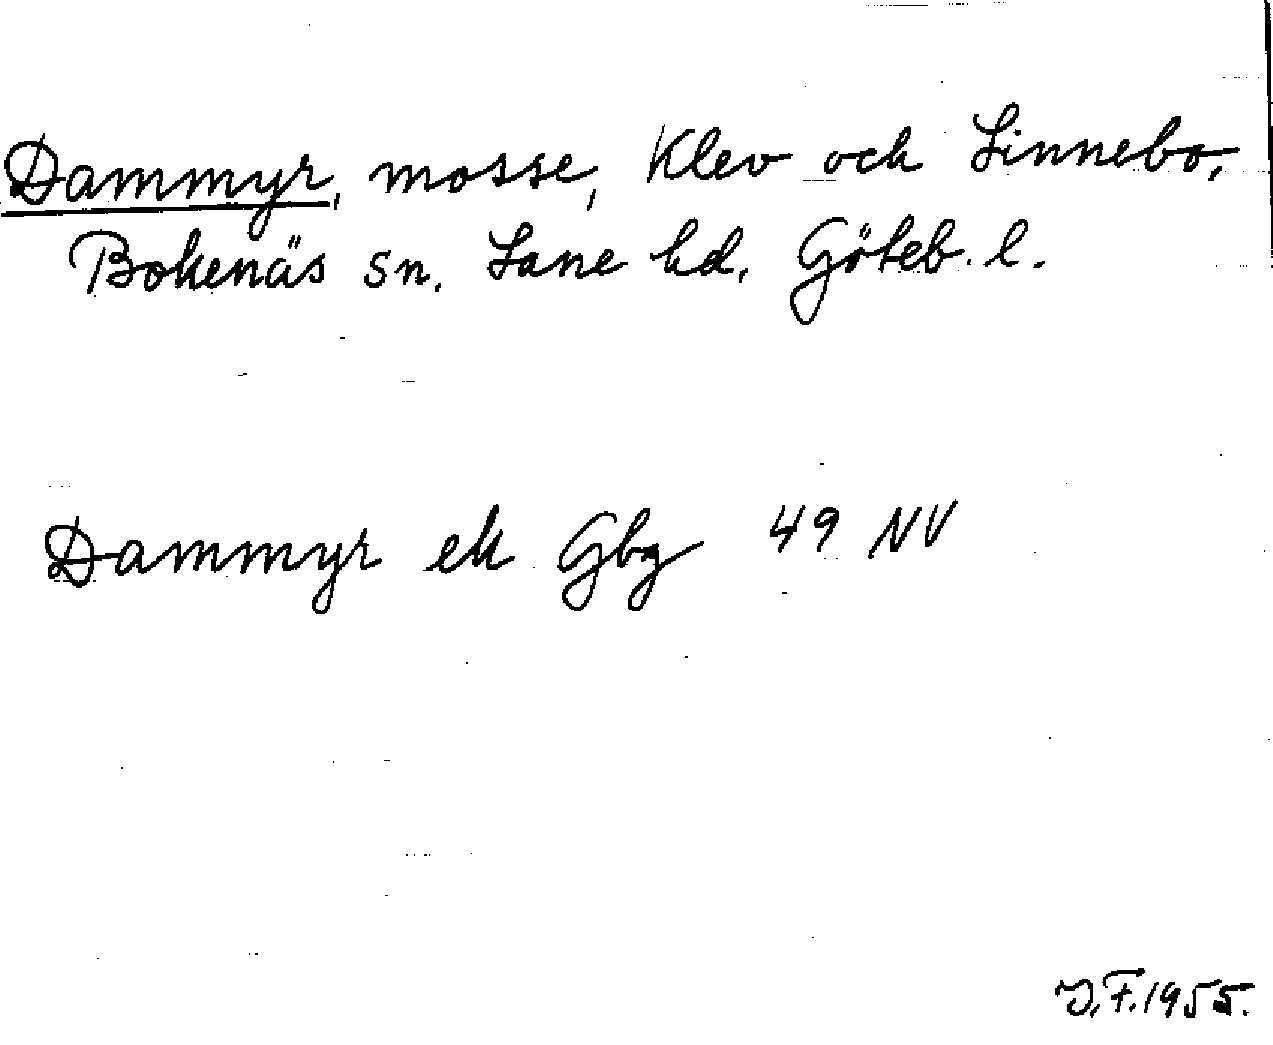 Dammyr, mosse, Klev och Linnebo,
Bokenäs sn. Lane hd. Göteb. l.
Dammyr ek Gbg 49 NV
J.F. 1955.